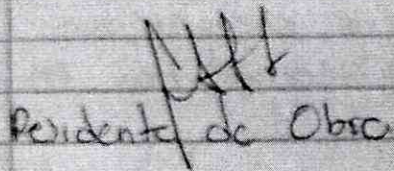 Residente de Obra